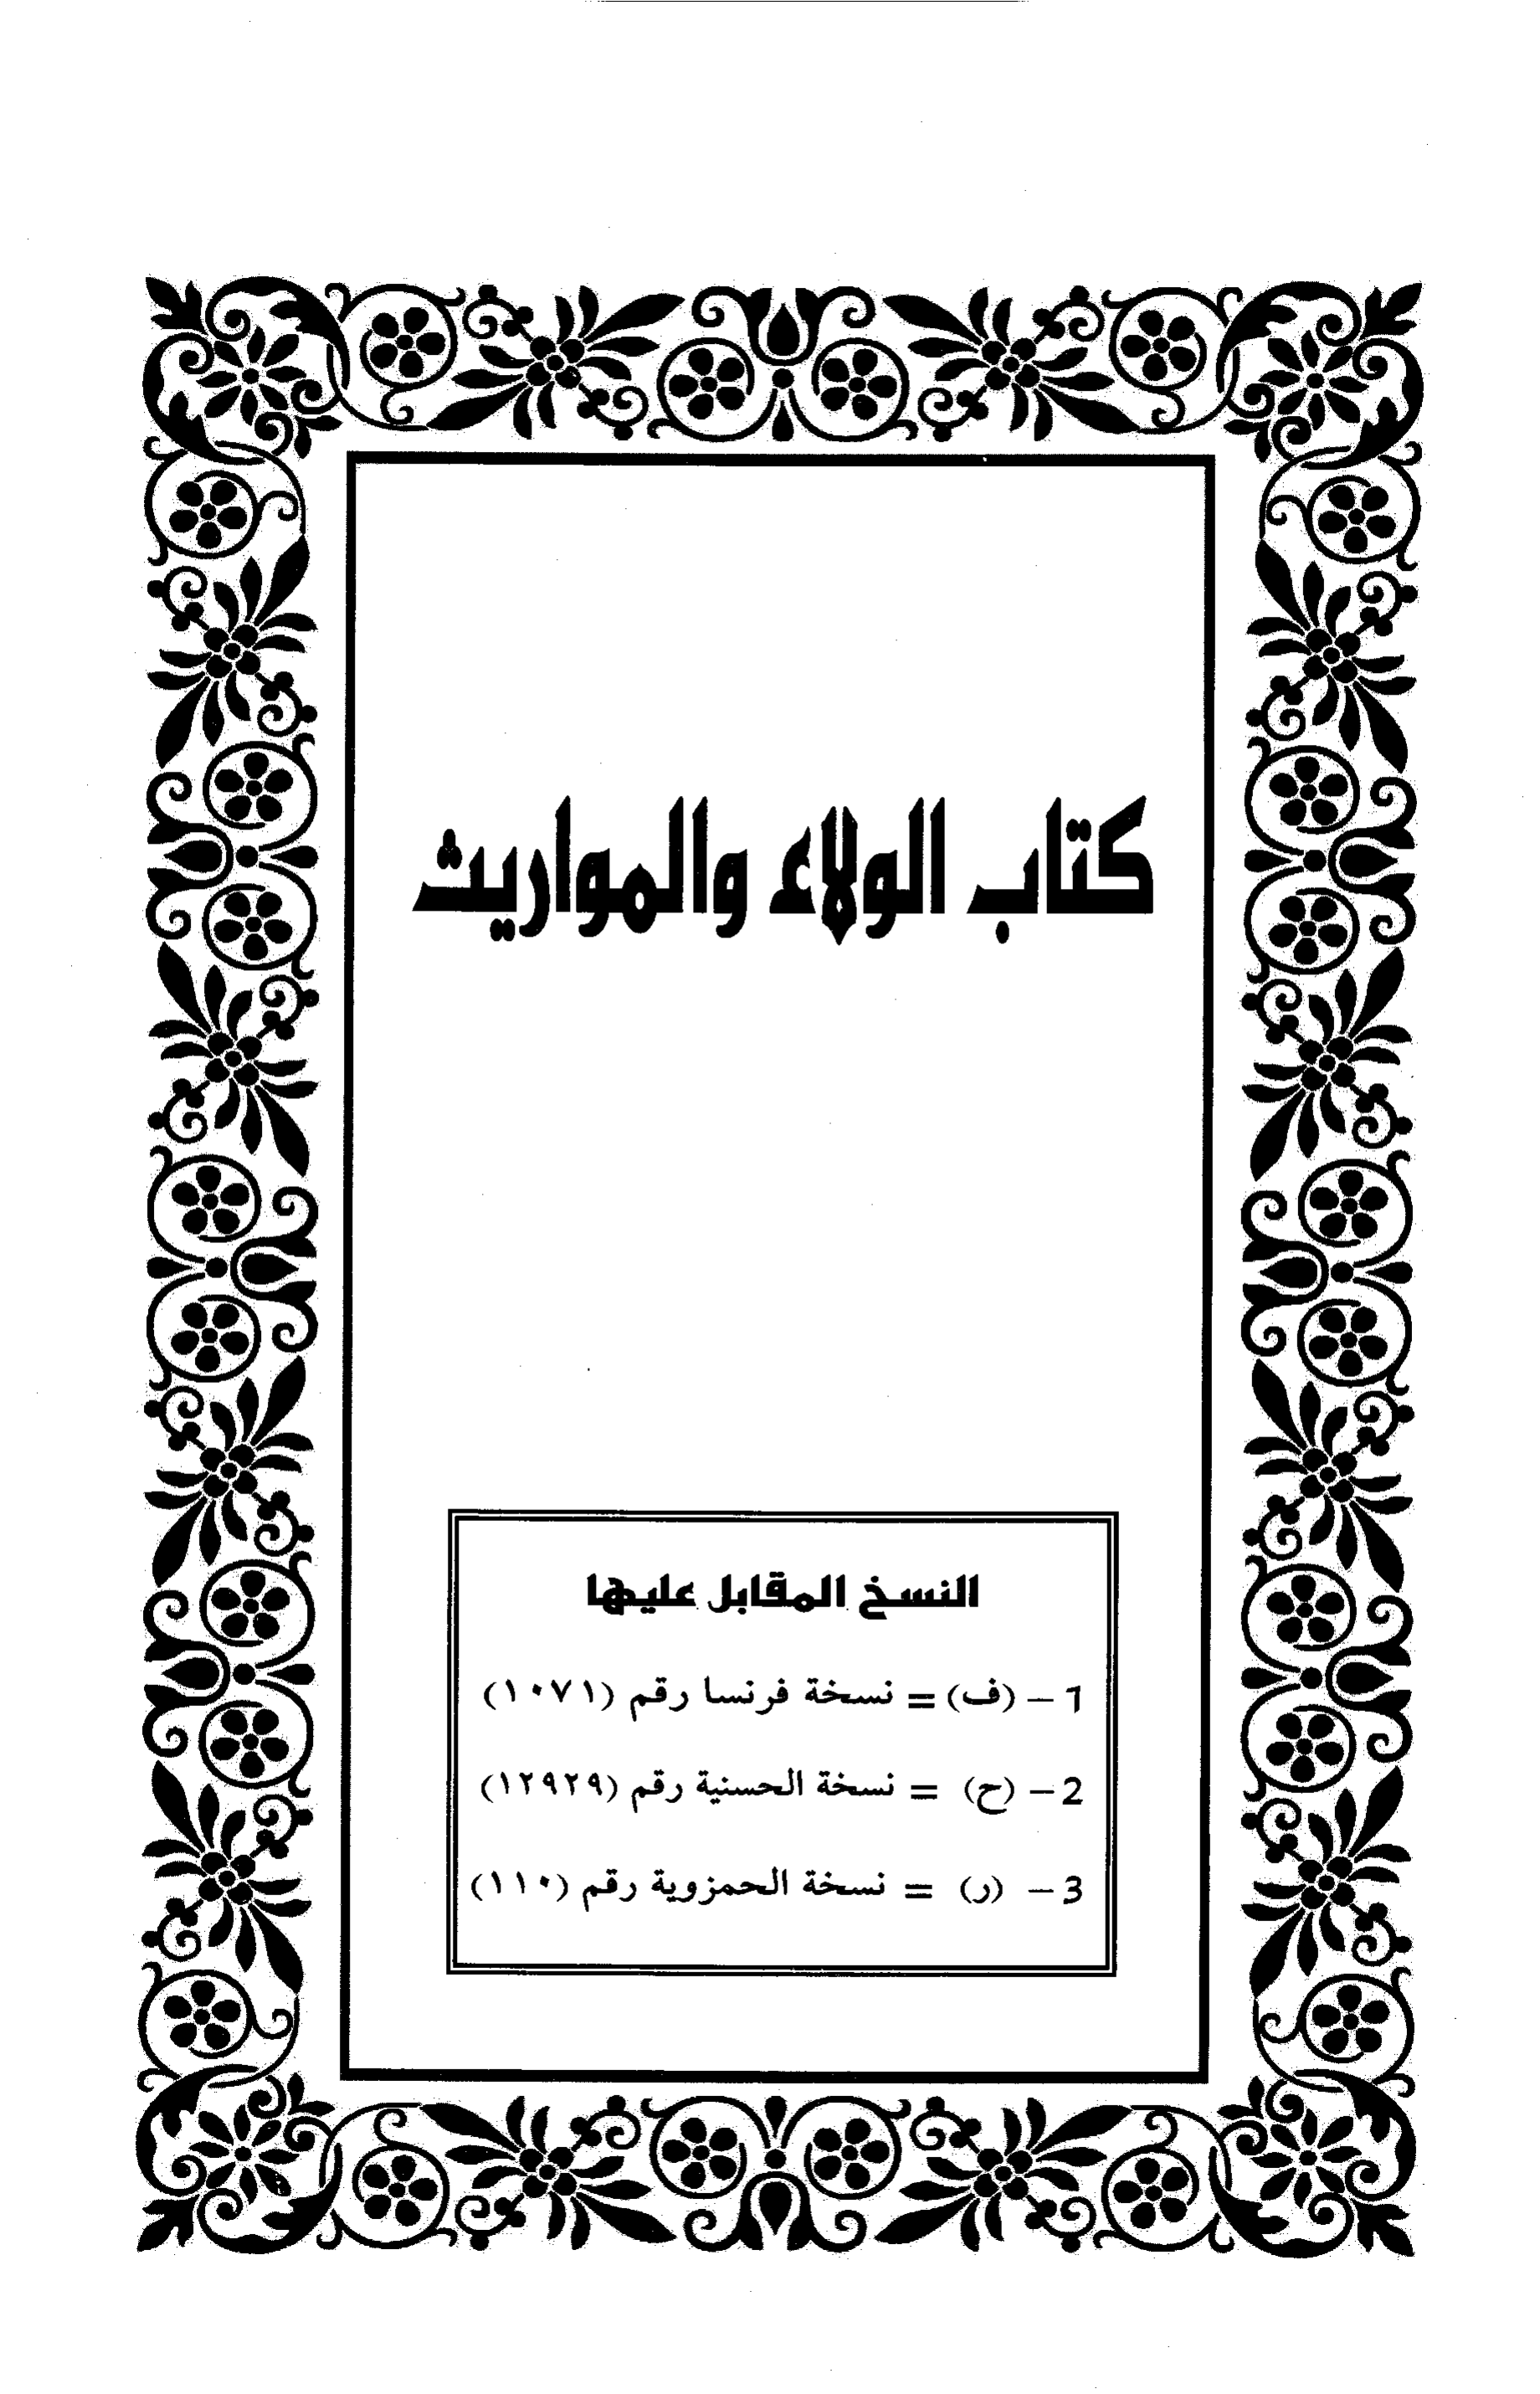 كتاب الولاء والمواريث
النسخ المقابل عليها
1 - (ف) = نسخة فرنسا رقم (١٠٧١)
2 - (ح) = نسخة الحسنية رقم (١٢٩٢٩)
3 - (ر) = نسخة الحمزوية رقم (١١٠)